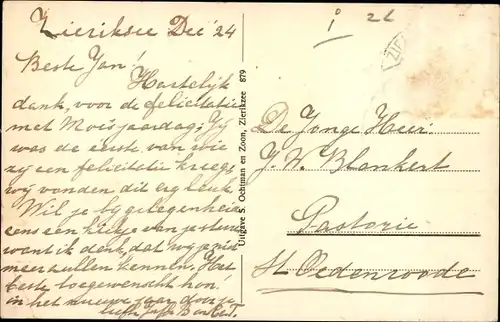 Zieriksee Dec '24
Beste Jan!
Hartelijk
dank, voor de felicitatie
met Moe's jaardag; Jij
was de eerste van wie
zij een felicitatie kreeg,
wij vonden dit erg leuk.
Wil je bij gelegenheid
eens een kiekje van je sturen
want ik denk, dat wij je niet
meer zullen kennen. Het
beste toegewenscht hoor!
in het nieuwe jaar door je
Uitgave S. Ochtman en Zoon, Zierikzee 879
i 22
ZIE
De Jonge Heer
J. W. Blankert
Pastorie
St Oedenroode